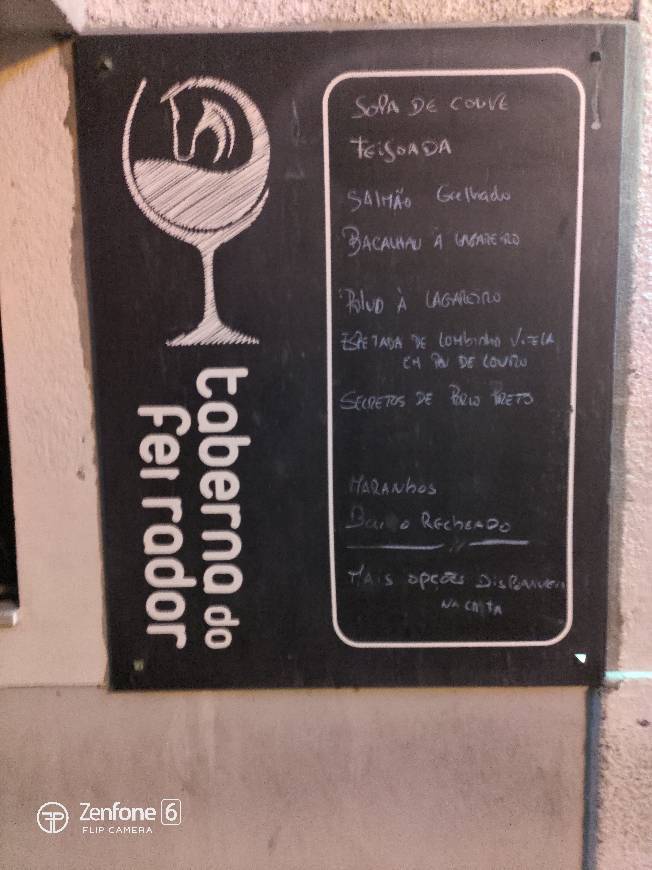 taberna do
ferrador
SOPA DE COUVE
FEIJOADA
SALMÃO Grelhado
BACALHAU À LAGAREIRO
POLVO À LAGAREIRO
ESPETADA DE LOMBINHO VITELA
EM PAU DE LOURO
SECRETOS DE PORCO PRETO
MARANHOS
Bucho RECHEADO
MAIS OPÇÕES DISPONIVEIS
NA CARTA
Zenfone 6
FLIP CAMERA